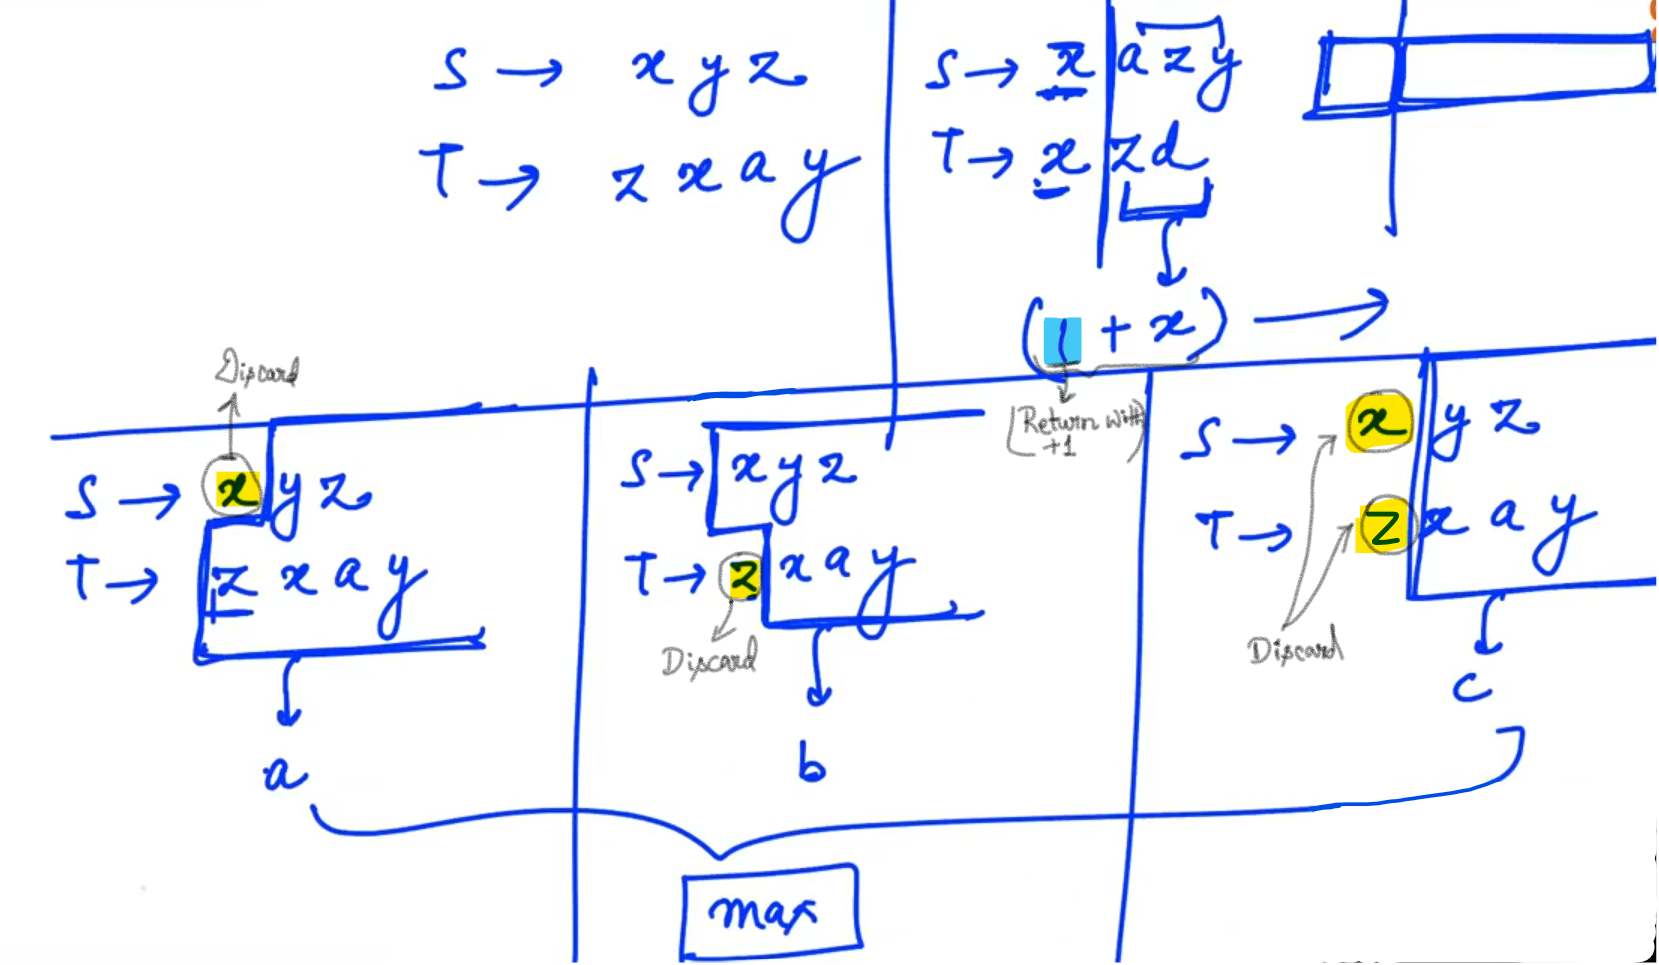 S → x y z
T → z x a y
S → x a z y
T → x z d
(1 + x) →
(Return with +1)
Discard
S → x y z
T → z x a y
a
S → x y z
T → z x a y
Discard
b
S → x y z
T → z x a y
Discard
c
max